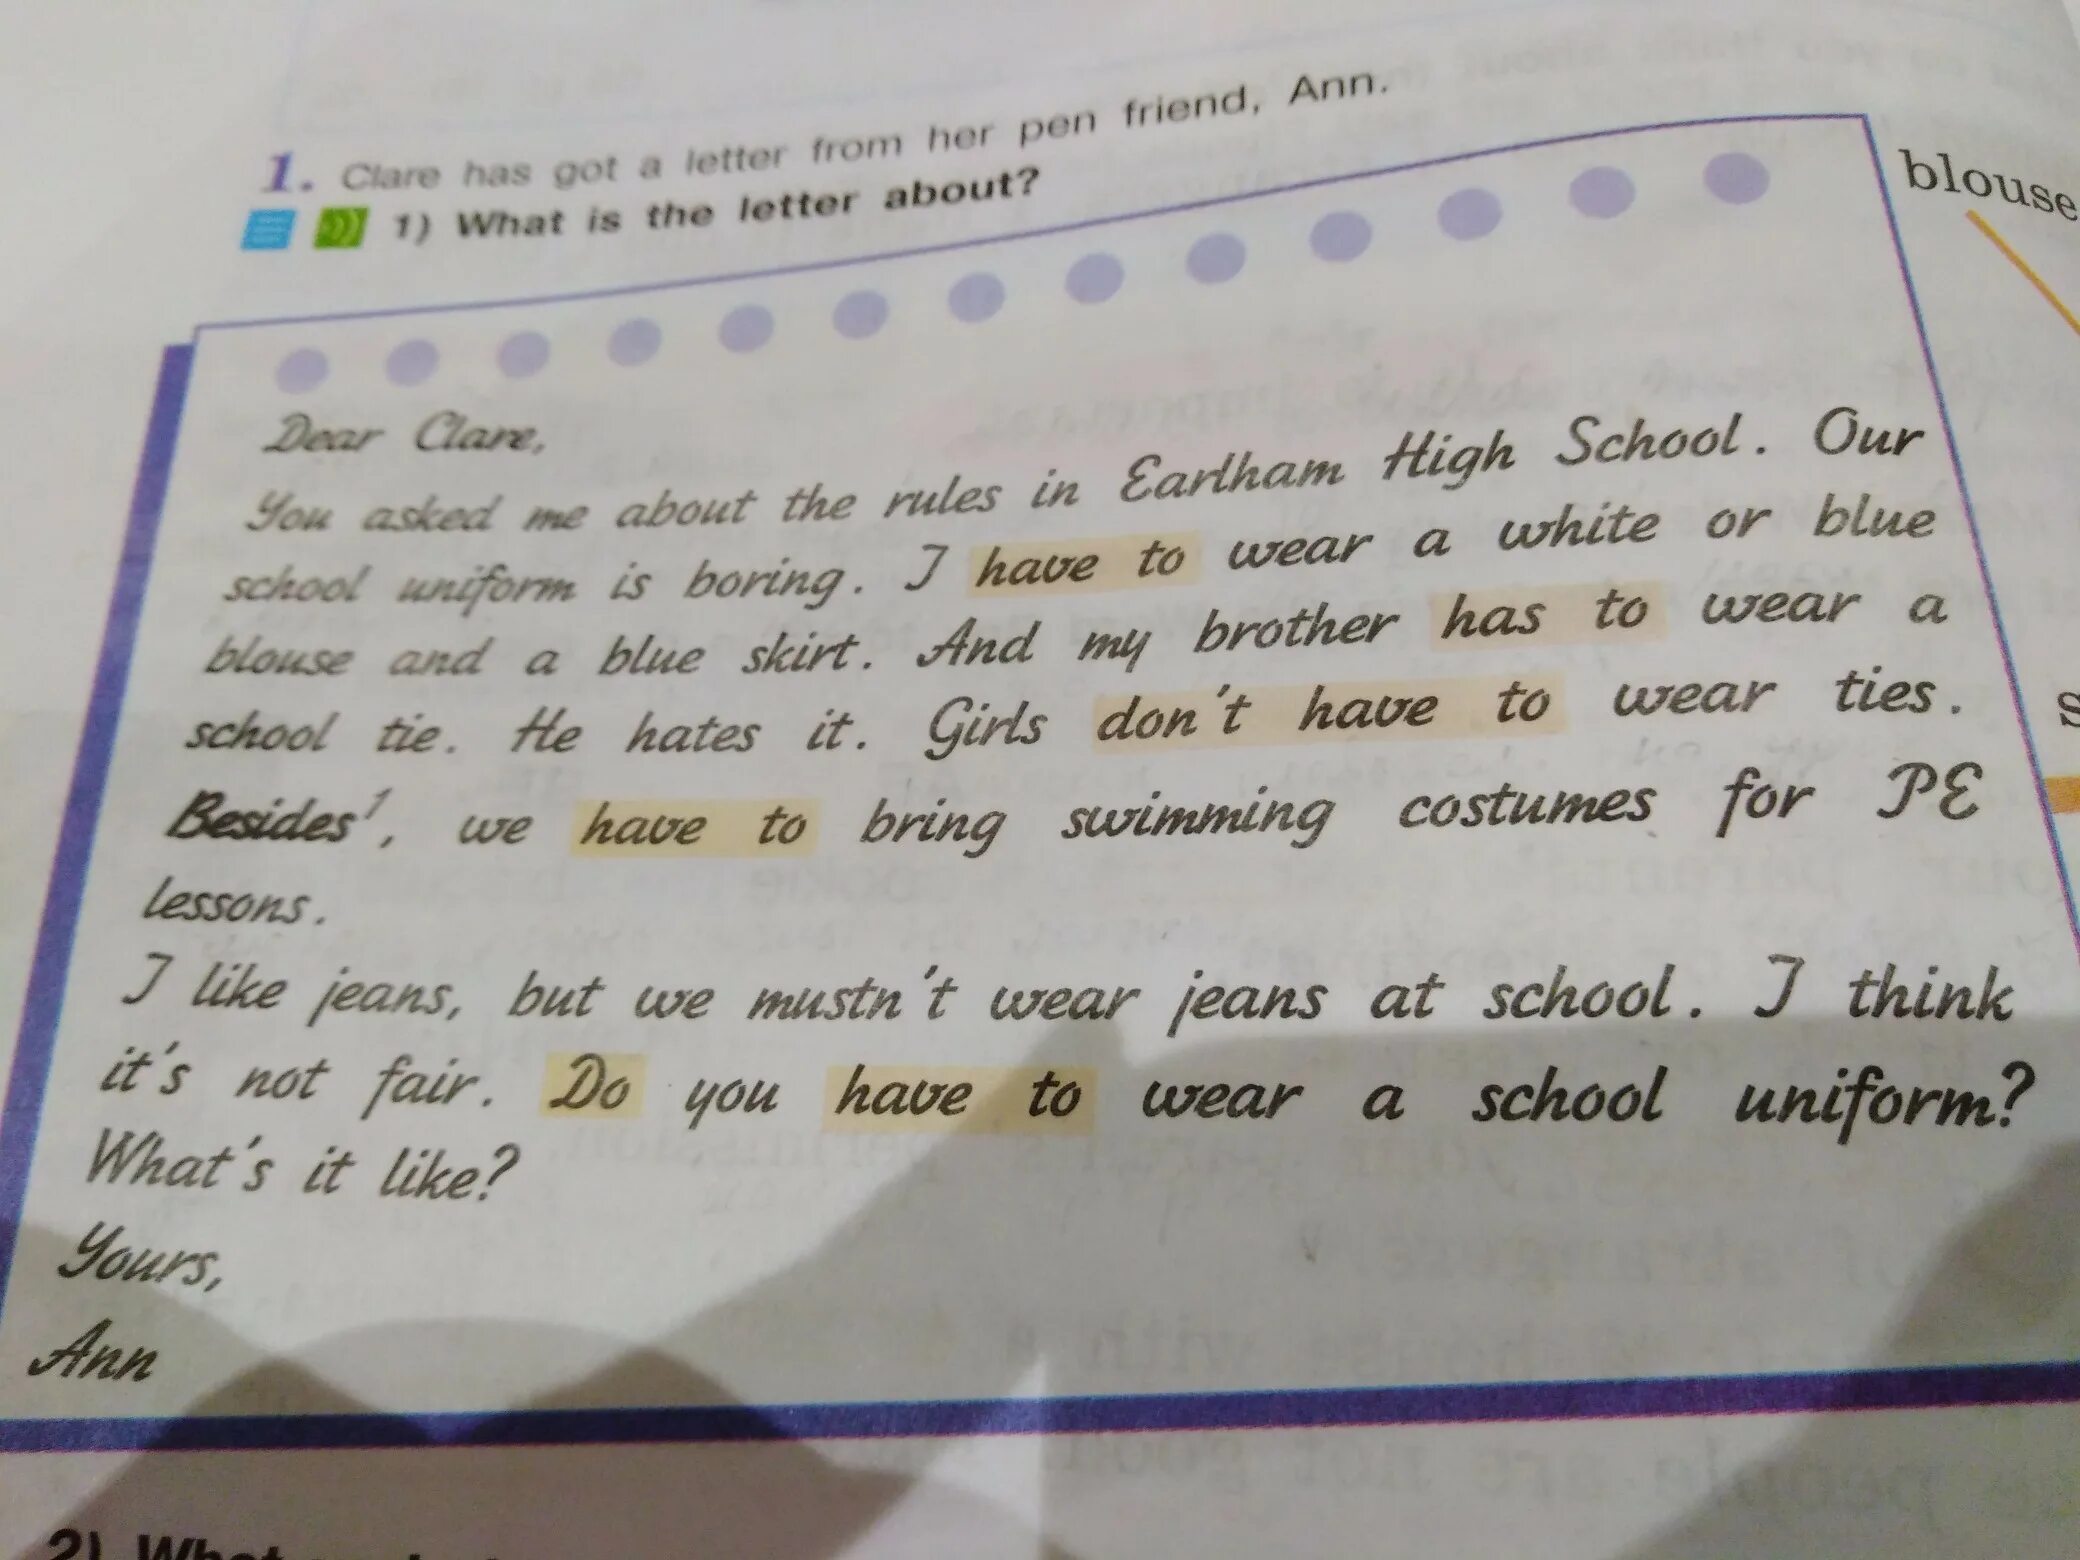 1. Clare has got a letter from her pen friend, Ann.
1) What is the letter about?
blouse
Dear Clare,
You asked me about the rules in Earlham High School. Our
school uniform is boring. I have to wear a white or blue
blouse and a blue skirt. And my brother has to wear a
school tie. He hates it. Girls don't have to wear ties.
Besides¹, we have to bring swimming costumes for PE
lessons.
I like jeans, but we mustn't wear jeans at school. I think
it's not fair. Do you have to wear a school uniform?
What's it like?
Yours,
Ann
2)